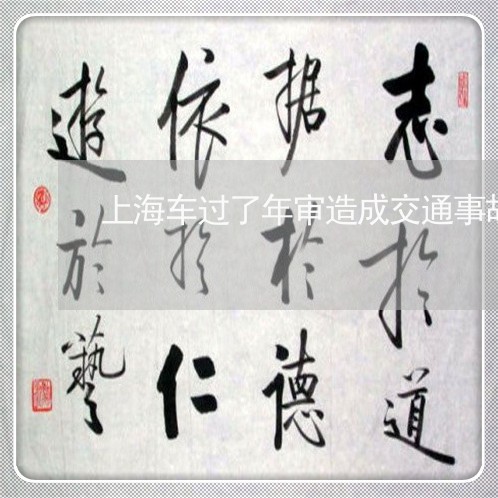 志於道
据於德
依於仁
遊於藝
上海车过了年审造成交通事故